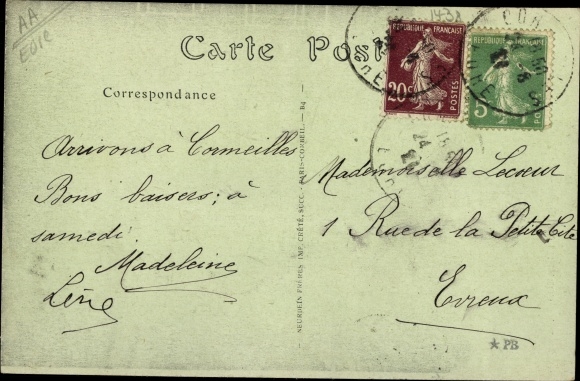 AA
Eure
1438
Carte Post
REPUBLIQUE FRANÇAISE
20c
POSTES
REPUBLIQUE FRANÇAISE
5
Correspondance
Arrivons à Cormeilles
Bons baisers; à
samedi.
Madeleine
NEURDEIN FRÈRES IMP CRÉTÉ, SUCC. - PARIS-CORBEIL. - B4
Mademoiselle Lecoeur
1 Rue de la Petite Cité
Evreux
★ PB